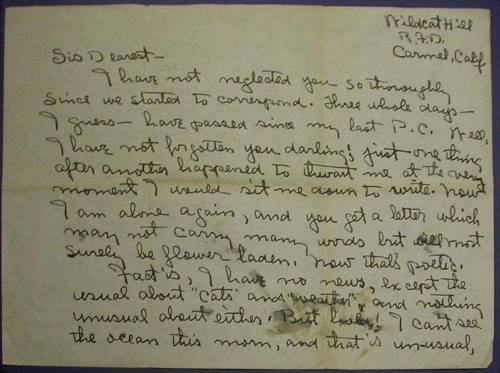 Wildcat Hill
R.F.D.
Carmel, Calif.
Sis Dearest—
I have not neglected you so thoroughly
since we started to correspond. Three whole days—
I guess— have passed since my last P.C. Well,
I have not forgotten you darling; just one thing
after another happened to thwart me at the very
moment I would sit me down to write. Now
I am alone again, and you get a letter which
may not carry many words but will most
surely be flower laden. Now that's poetic.
Fact is, I have no news, except the
usual about "cats" and "weather", and nothing
unusual about either. But look! I can't see
the ocean this morn, and that is un-usual,